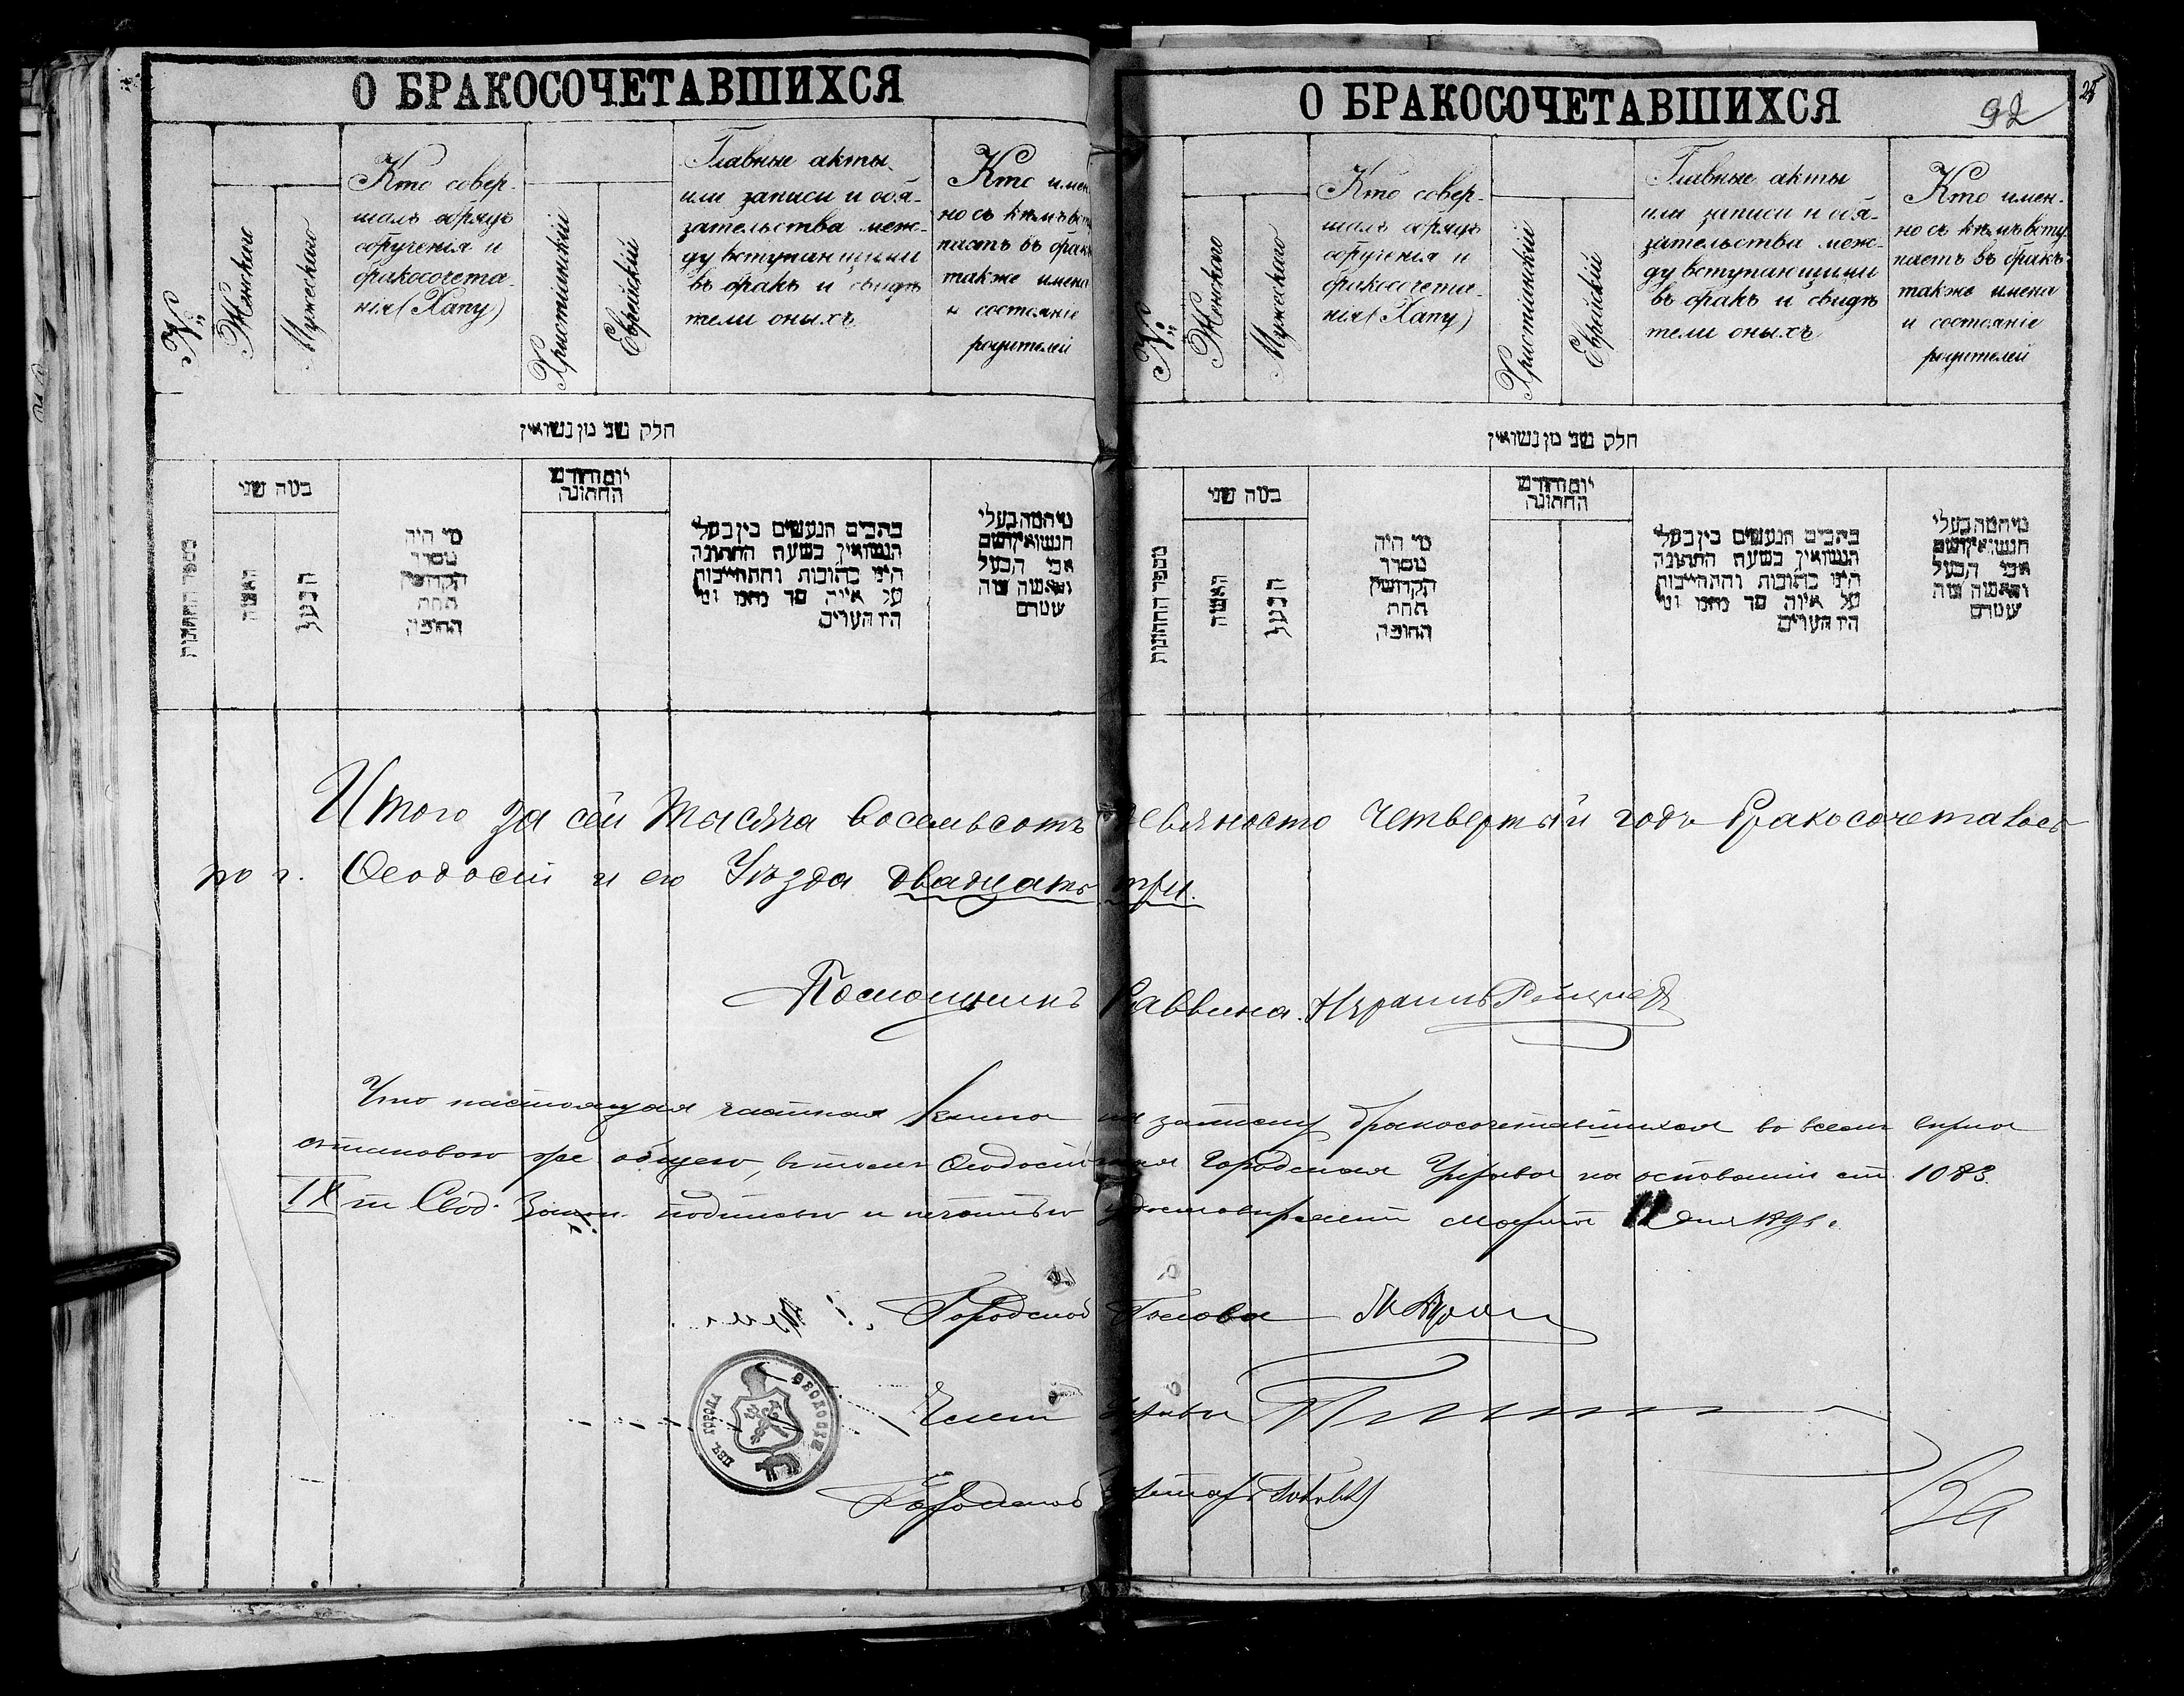 О БРАКОСОЧЕТАВШИХСЯ
№
Женскаго
Мужескаго
Кто совер-
шалъ обрядъ
обрученія и
бракосочета-
нія (Хапу)
Христіанскій
Еврейскій
Главные акты
или записи и обя-
зательства меж-
ду вступающими
въ бракъ и свидѣ
тели оныхъ
Кто имен
но съ кѣмъ всту
паетъ въ бракъ
также имена
и состояніе
родителей
חלק שני מן נשואין
מספר החתונות
כמה שני
האשה
הבעל
מי היה
מסדר
הקדושין
תחת
החופה
יום וחודש
החתונה
כתבים הנעשים בין בעלי
הנשואין בשעת החתונה
היינו כתובות והתחייבות
על איזה סך נתנו ומי
היו העדים
מי המה בעלי
הנשואין ושם
אבי הבעל
והאשה ומה
שטרם
О БРАКОСОЧЕТАВШИХСЯ
92
25
№
Женскаго
Мужескаго
Кто совер-
шалъ обрядъ
обрученія и
бракосочета-
нія (Хапу)
Христіанскій
Еврейскій
Главные акты
или записи и обя-
зательства меж-
ду вступающими
въ бракъ и свидѣ
тели оныхъ
Кто имен-
но съ кѣмъ всту
паетъ въ бракъ
также имена
и состояніе
родителей
חלק שני מן נשואין
מספר החתונות
כמה שני
האשה
הבעל
מי היה
מסדר
הקדושין
תחת
החופה
יום וחודש
החתונה
כתבים הנעשים בין בעלי
הנשואין בשעת החתונה
היינו כתובות והתחייבות
על איזה סך נתנו ומי
היו העדים
מי המה בעלי
הנשואין ושם
אבי הבעל
והאשה ומה
שטרם
Итого за сей тысяча восемьсотъ девяносто четвертый годъ бракосочеталось
по г. Ѳеодосіи и ея Уѣзда двадцать три.
Помощникъ Раввина Израиль
Что настоящая частная книга на записку бракосочетавшихся во всемъ вѣрна
таковою же общею, въ томъ Ѳеодосійская Городская Управа на основаніи ст. 1083
IX т Свод. Закон. подписью и печатью удостовѣряетъ Марта 11 дня 1895 г.
Городской Голова
Членъ Управы
Городской Секретарь
ПЕЧ. ГОРОДА ѲЕОДОСІИ